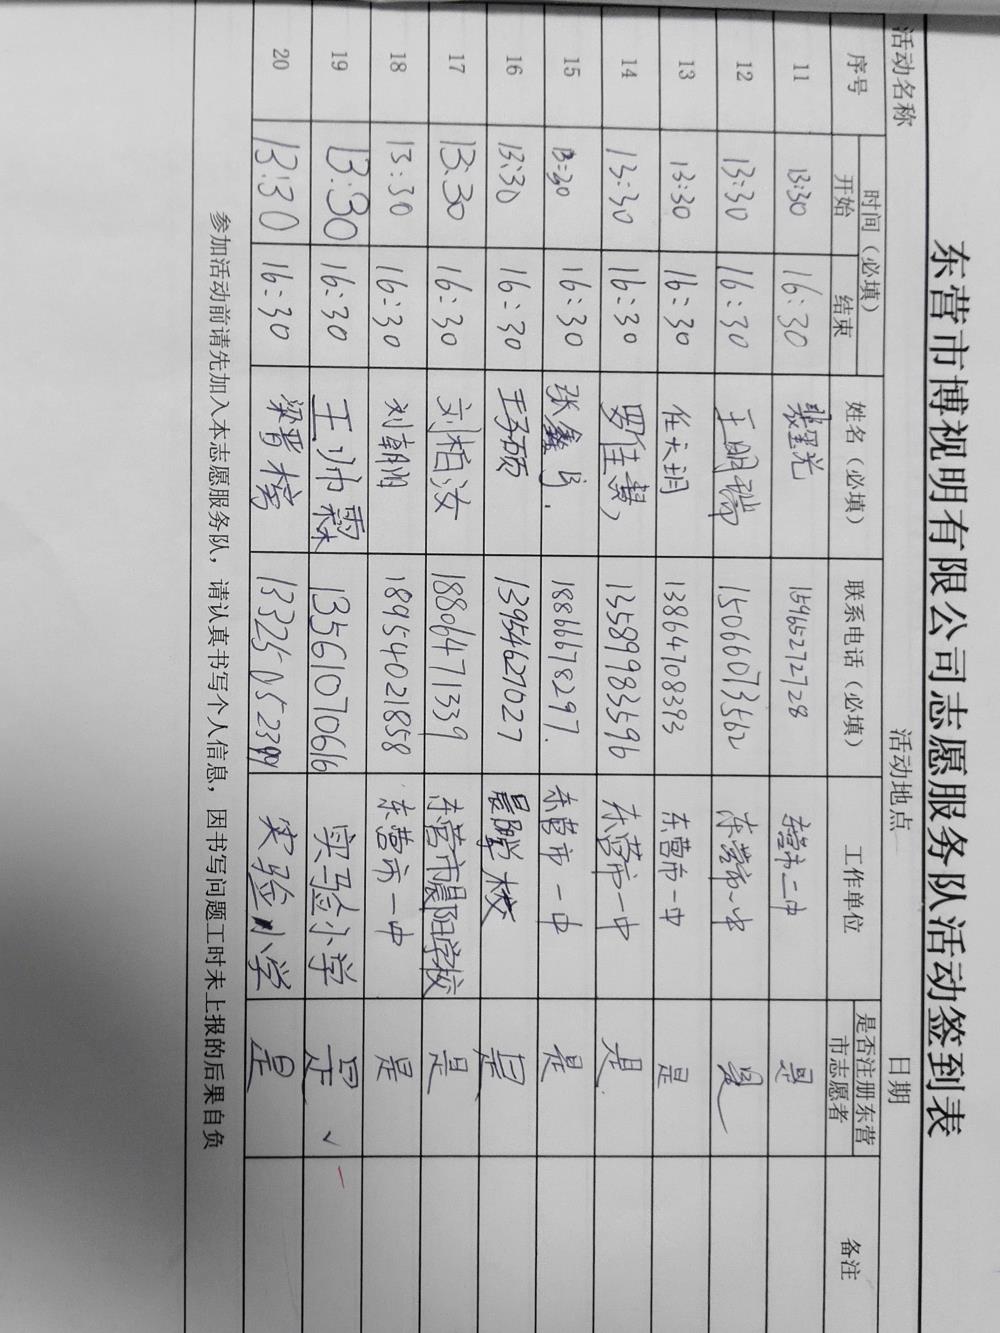 东营市博视明有限公司志愿服务队活动签到表
活动名称 活动地点 日期
序号 时间（必填） 姓名（必填） 联系电话（必填） 工作单位 是否注册东营市志愿者 备注
开始 结束
11 13:30 16:30 15965272728 东营市二中 是
12 13:30 16:30 王明瑞 15066073562 东营市一中 是
13 13:30 16:30 任天玥 13864708393 东营市一中 是
14 13:30 16:30 罗佳慧 13589983596 东营市一中 是
15 13:30 16:30 张鑫 18866678297. 东营市一中 是
16 13:30 16:30 王子硕 13954627027 晨阳学校 是
17 13:30 16:30 刘栢汝 18806471339 东营市晨阳学校 是
18 13:30 16:30 刘朝阳 18954021858 东营市一中 是
19 13:30 16:30 王帅霖 13561070616 实验小学 是 ✓
20 13:30 16:30 梁晋榕 实验小学 是
参加活动前请先加入本志愿服务队，请认真书写个人信息，因书写问题工时未上报的后果自负